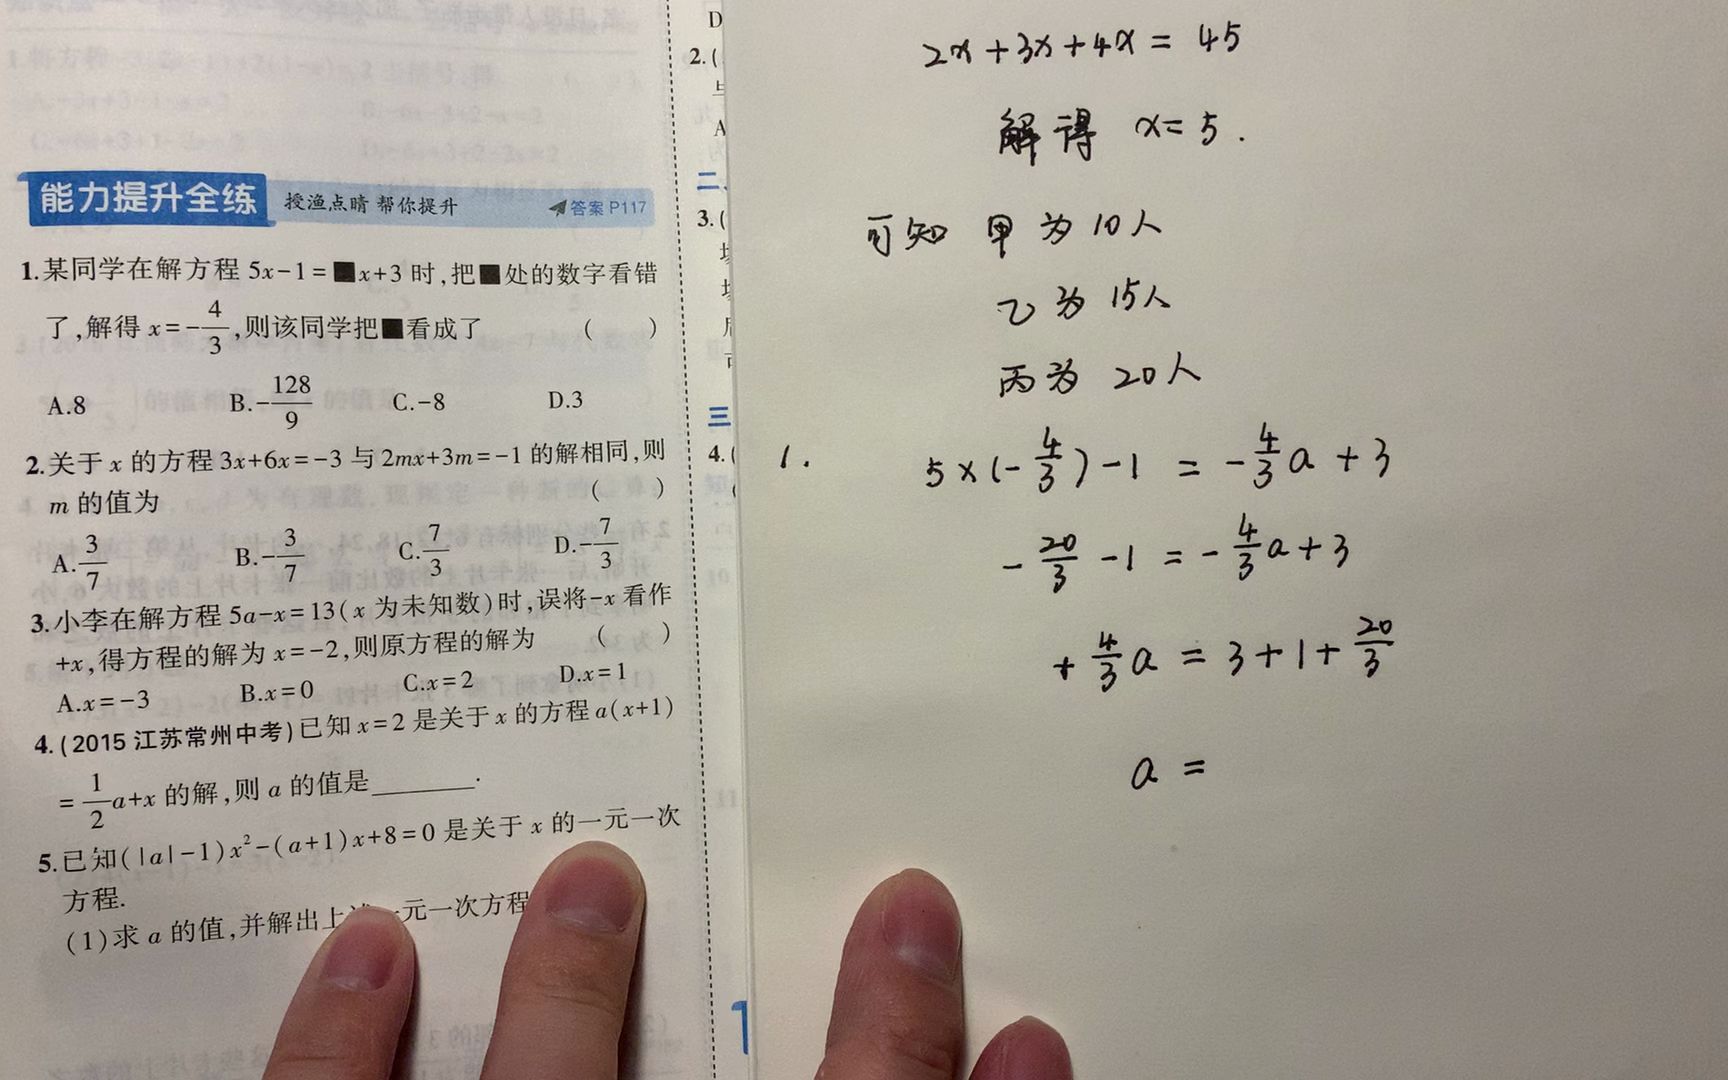 能力提升全练 授渔点睛 帮你提升 答案 P117
1.某同学在解方程 5x-1=■x+3 时,把■处的数字看错
了,解得 x=-4/3,则该同学把■看成了 ( )
A.8 B.-128/9 C.-8 D.3
2.关于 x 的方程 3x+6x=-3 与 2mx+3m=-1 的解相同,则
m 的值为 ( )
A.3/7 B.-3/7 C.7/3 D.-7/3
3.小李在解方程 5a-x=13(x 为未知数)时,误将-x 看作
+x,得方程的解为 x=-2,则原方程的解为 ( )
A.x=-3 B.x=0 C.x=2 D.x=1
4.(2015 江苏常州中考)已知 x=2 是关于 x 的方程 a(x+1)
=1/2a+x 的解,则 a 的值是______.
5.已知(|a|-1)x²-(a+1)x+8=0 是关于 x 的一元一次
方程.
(1)求 a 的值,并解出上 一元一次方程
D
2.(
A
二、
3.(
三
4.(
(
2x+3x+4x= 45
解得 x=5.
可知 甲为10人
乙为15人
丙为 20人
1. 5×(-4/3)-1 = -4/3a+3
-20/3-1=-4/3a+3
+4/3a=3+1+20/3
a=